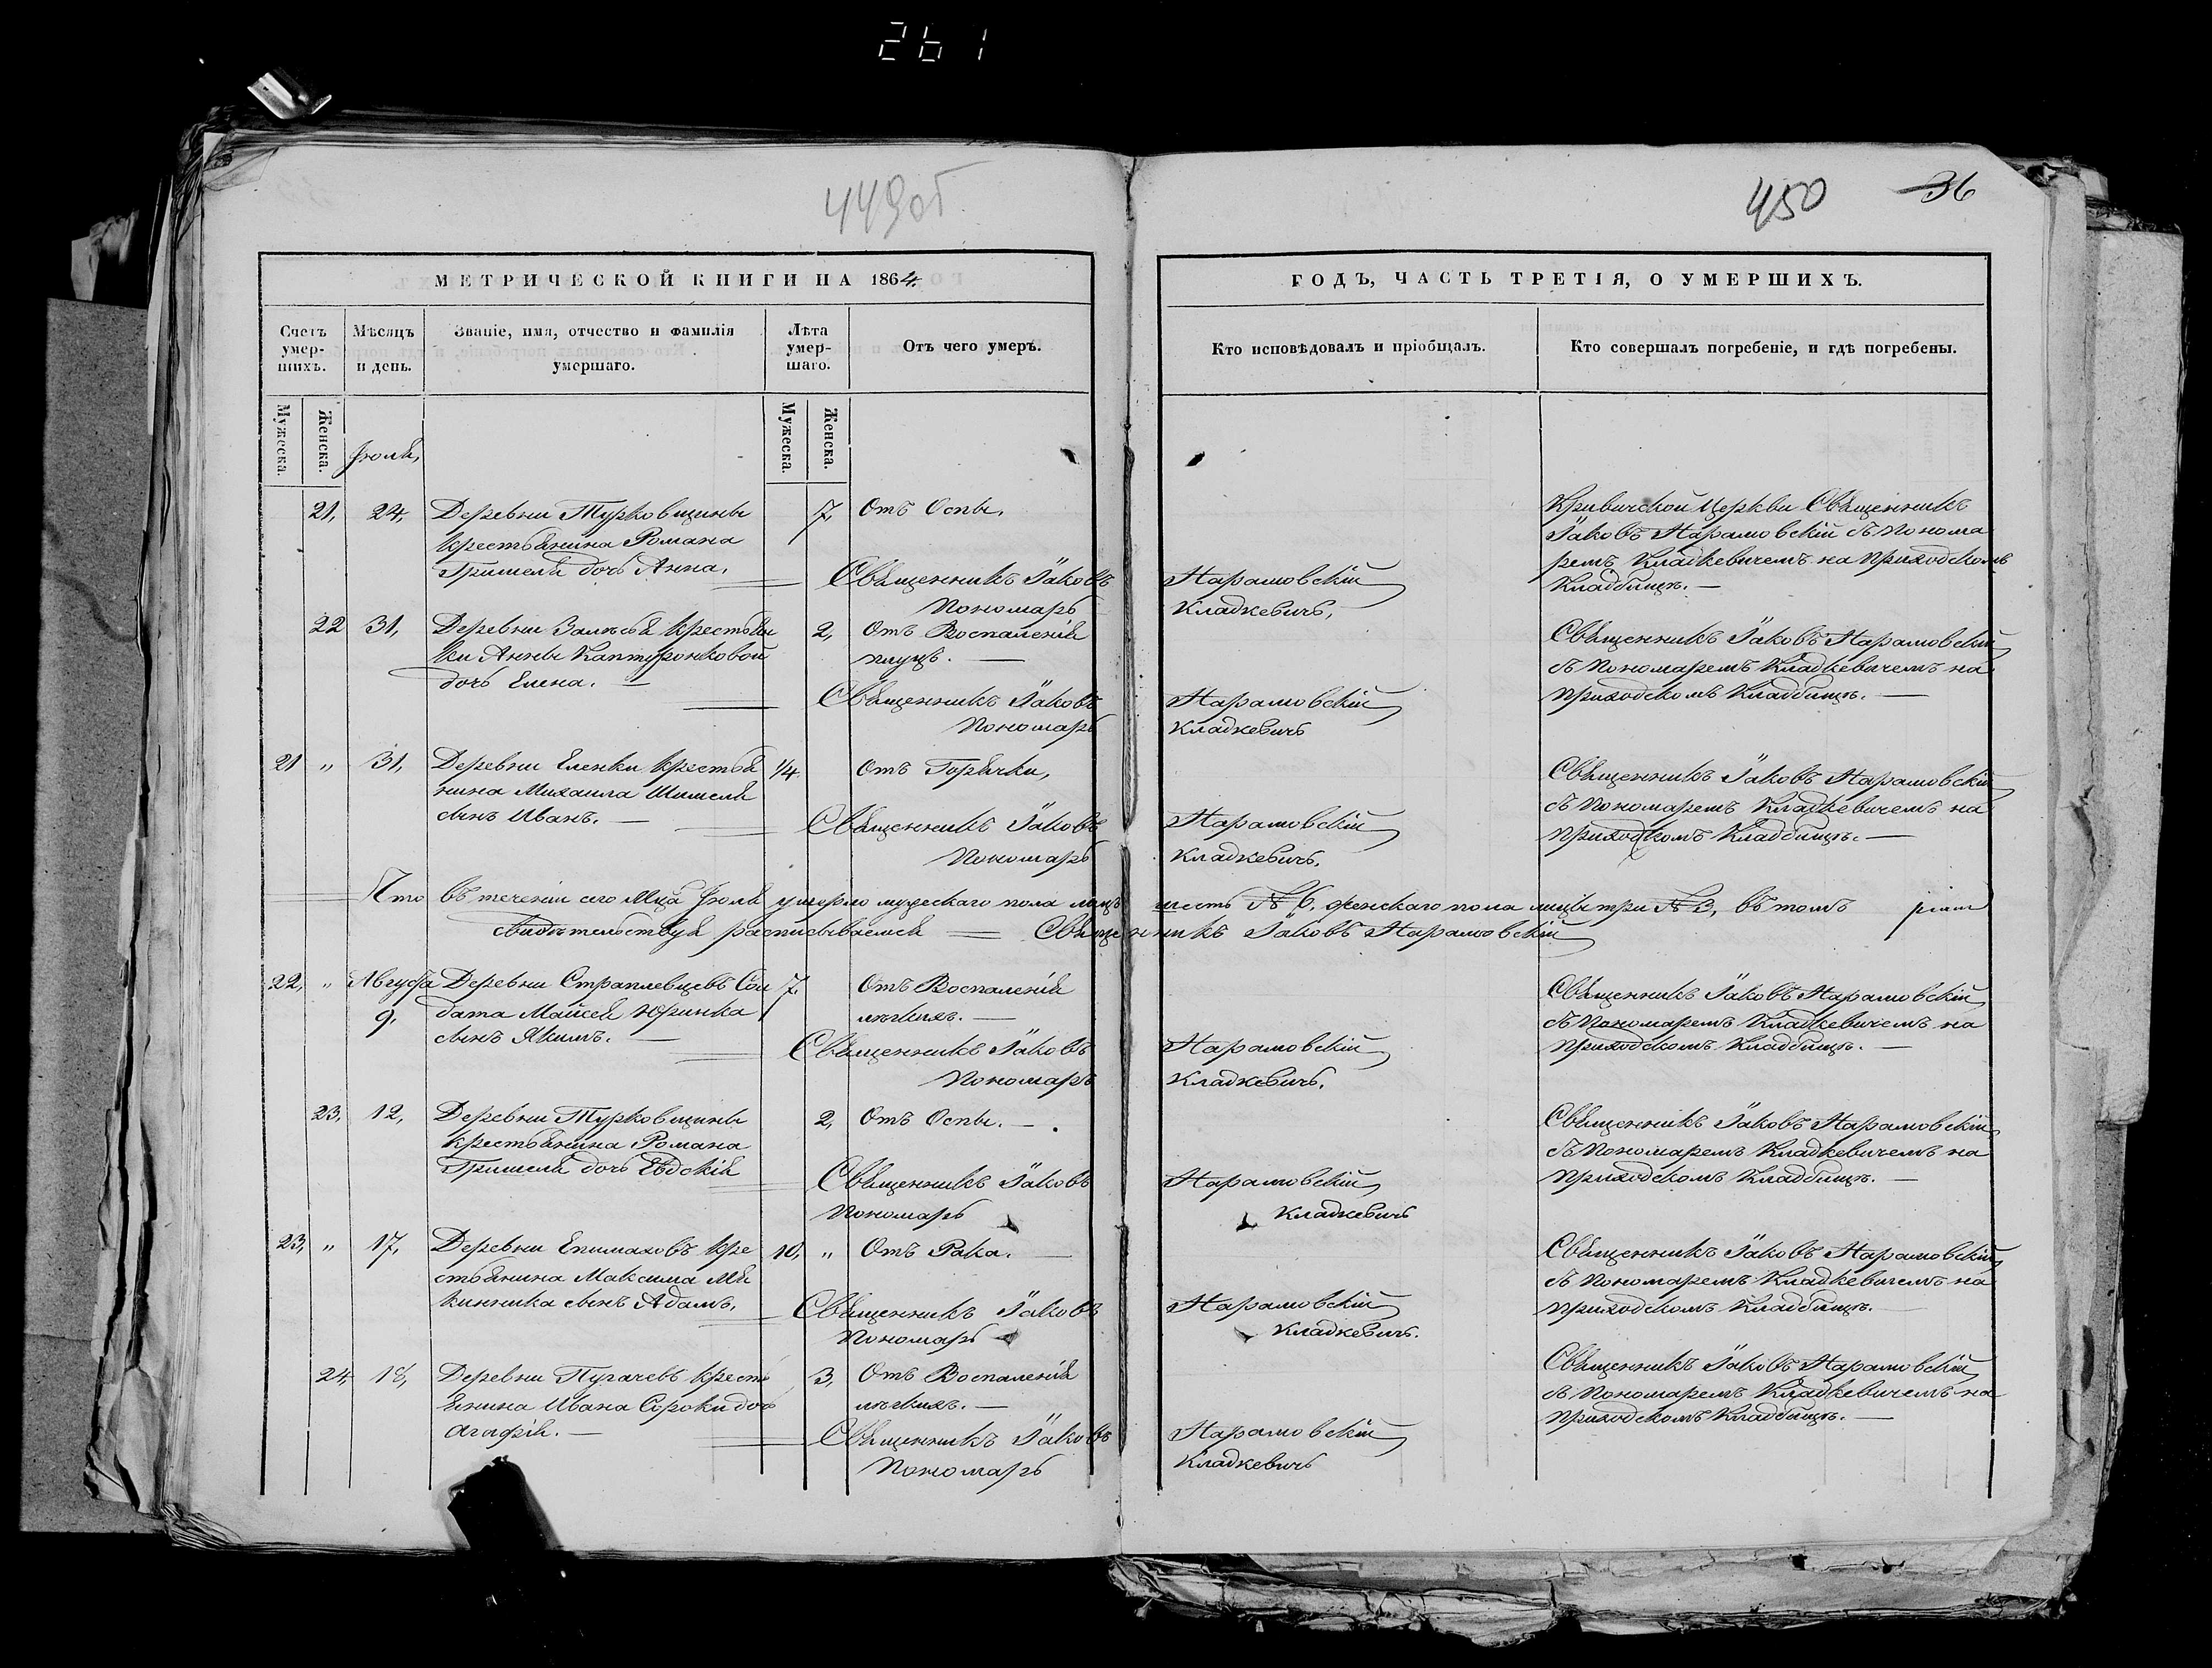 261
449об
450 36
МЕТРИЧЕСКОЙ КНИГИ НА 1864
ГОДЪ, ЧАСТЬ ТРЕТІЯ, О УМЕРШИХЪ.
Счетъ умер-шихъ.
Мѣсяцъ и день.
Званіе, имя, отчество и фамилія умершаго.
Лѣта умер-шаго.
Отъ чего умеръ.
Кто исповѣдовалъ и пріобщалъ.
Кто совершалъ погребеніе, и гдѣ погребены.
Мужеска.
Женска.
Мужеска.
Женска.
Іюля,
21, 24, Деревни Турковщины 7, Отъ Оспы.
крестьянина Романа
Гришеля дочь Анна.
Священникъ Іаковъ Нарановскій
Пономарь Кладкевичъ,
Кривичской Церкви Священникъ
Іаковъ Нарановскій съ Понома
ремъ Кладкевичемъ на приходскомъ
Кладбищѣ.
22 31, Деревни Залѣсья крестьян 2, Отъ Воспаленія
ки Анны Каптуронковой плуцъ.
дочь Елена.
Священникъ Іаковъ Нарановскій
Пономарь Кладкевичъ
Священникъ Іаковъ Нарановскій
съ Пономаремъ Кладкевичемъ на
приходскомъ Кладбищѣ.
21 " 31, Деревни Еленки крестья 1/4 Отъ Горячки,
нина Михаила Шишеля
сынъ Иванъ.
Священникъ Іаковъ Нарановскій
Пономарь Кладкевичъ,
Священникъ Іаковъ Нарановскій
съ Пономаремъ Кладкевичемъ на
приходскомъ Кладбищѣ.
Что въ теченіи сего Мца Іюля умерло мужескаго пола лицъ шесть № 6, женскаго пола лицъ три № 3, въ томъ
свидѣтельствуя расписываемся Священникъ Іаковъ Нарановскій
22, " Августа Деревни Страплевцевъ Сол 7, Отъ Воспаленія
9, дата Майсея Юринка лѣгкихъ.
сынъ Якимъ.
Священникъ Іаковъ Нарановскій
Пономарь Кладкевичъ.
Священникъ Іаковъ Нарановскій
съ Пономаремъ Кладкевичемъ на
приходскомъ Кладбищѣ.
23, 12, Деревни Турковщины 2, Отъ Оспы.
крестьянина Романа
Гришеля дочь Евдокія
Священникъ Іаковъ Нарановскій
Пономарь Кладкевичъ
Священникъ Іаковъ Нарановскій
съ Пономаремъ Кладкевичемъ на
приходскомъ Кладбищѣ.
23, " 17, Деревни Епимаховъ кре 10, " Отъ Рака.
стьянина Максима Мя
кинника сынъ Адамъ,
Священникъ Іаковъ Нарановскій
Пономарь Кладкевичъ.
Священникъ Іаковъ Нарановскій
съ Пономаремъ Кладкевичемъ на
приходскомъ Кладбищѣ.
24, 18, Деревни Пугачевъ кресть 3, Отъ Воспаленія
янина Ивана Сороки дочь лѣгкихъ.
Агафія.
Священникъ Іаковъ Нарановскій
Пономарь Кладкевичъ
Священникъ Іаковъ Нарановскій
съ Пономаремъ Кладкевичемъ на
приходскомъ Кладбищѣ.